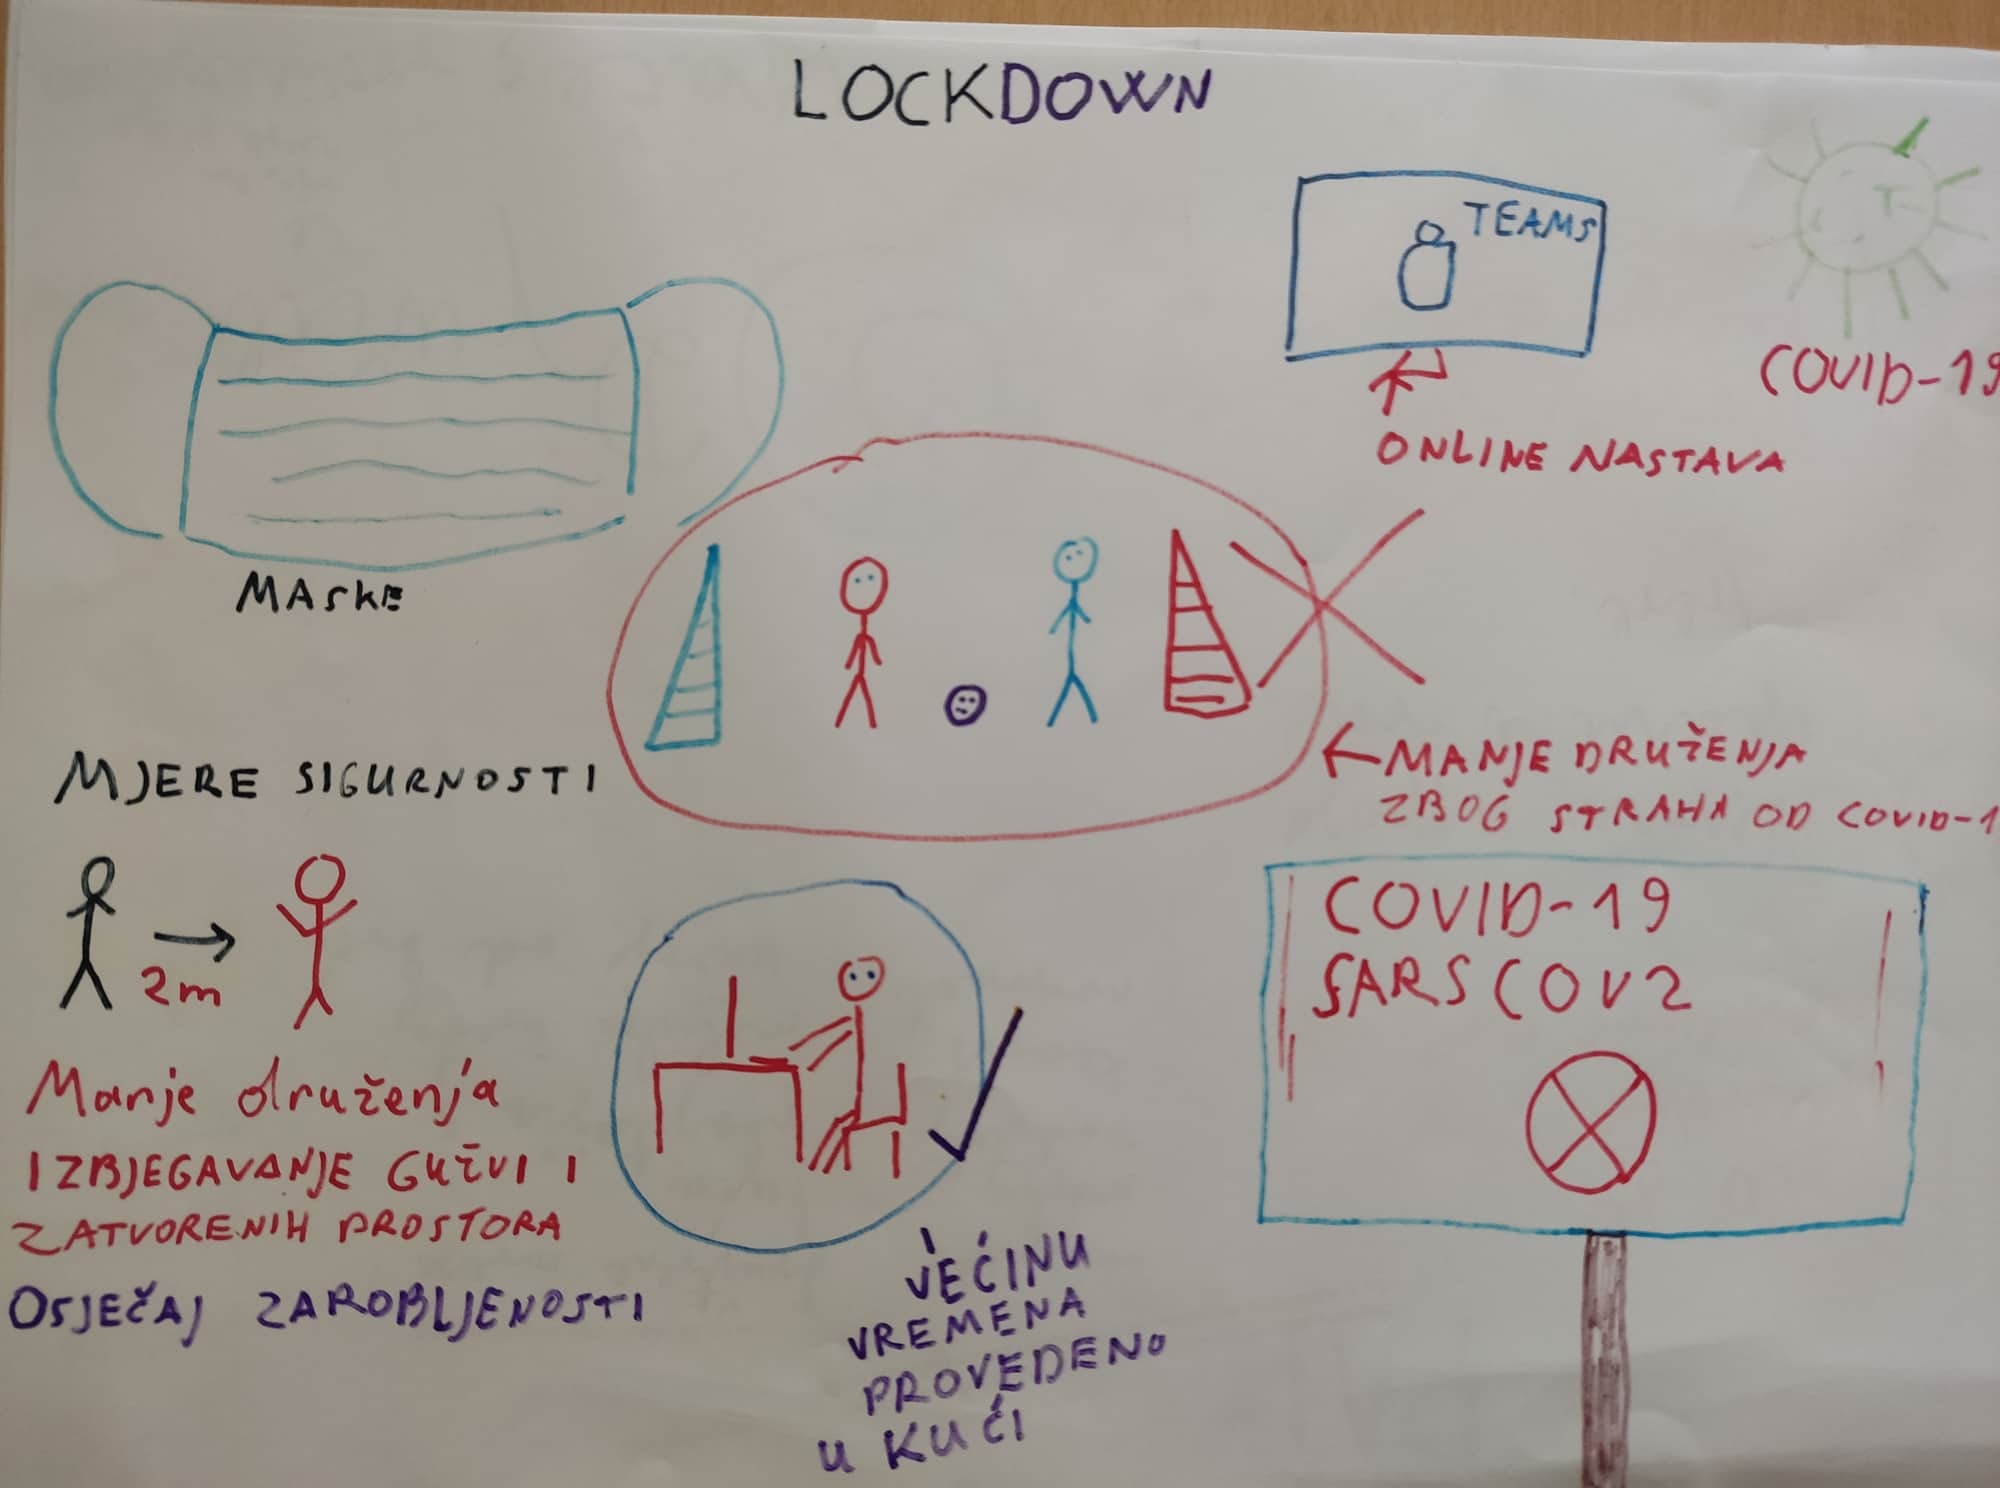 LOCKDOWN
TEAMS
COVID-19
ONLINE NASTAVA
MASKE
MJERE SIGURNOSTI
MANJE DRUŽENJA
ZBOG STRAHA OD COVID-1
2m
COVID-19
SARS COV2
Manje druženja
IZBJEGAVANJE GUŽVI I
ZATVORENIH PROSTORA
OSJEČAJ ZAROBLJENOSTI
VEĆINU
VREMENA
PROVEDENO
U KUĆI